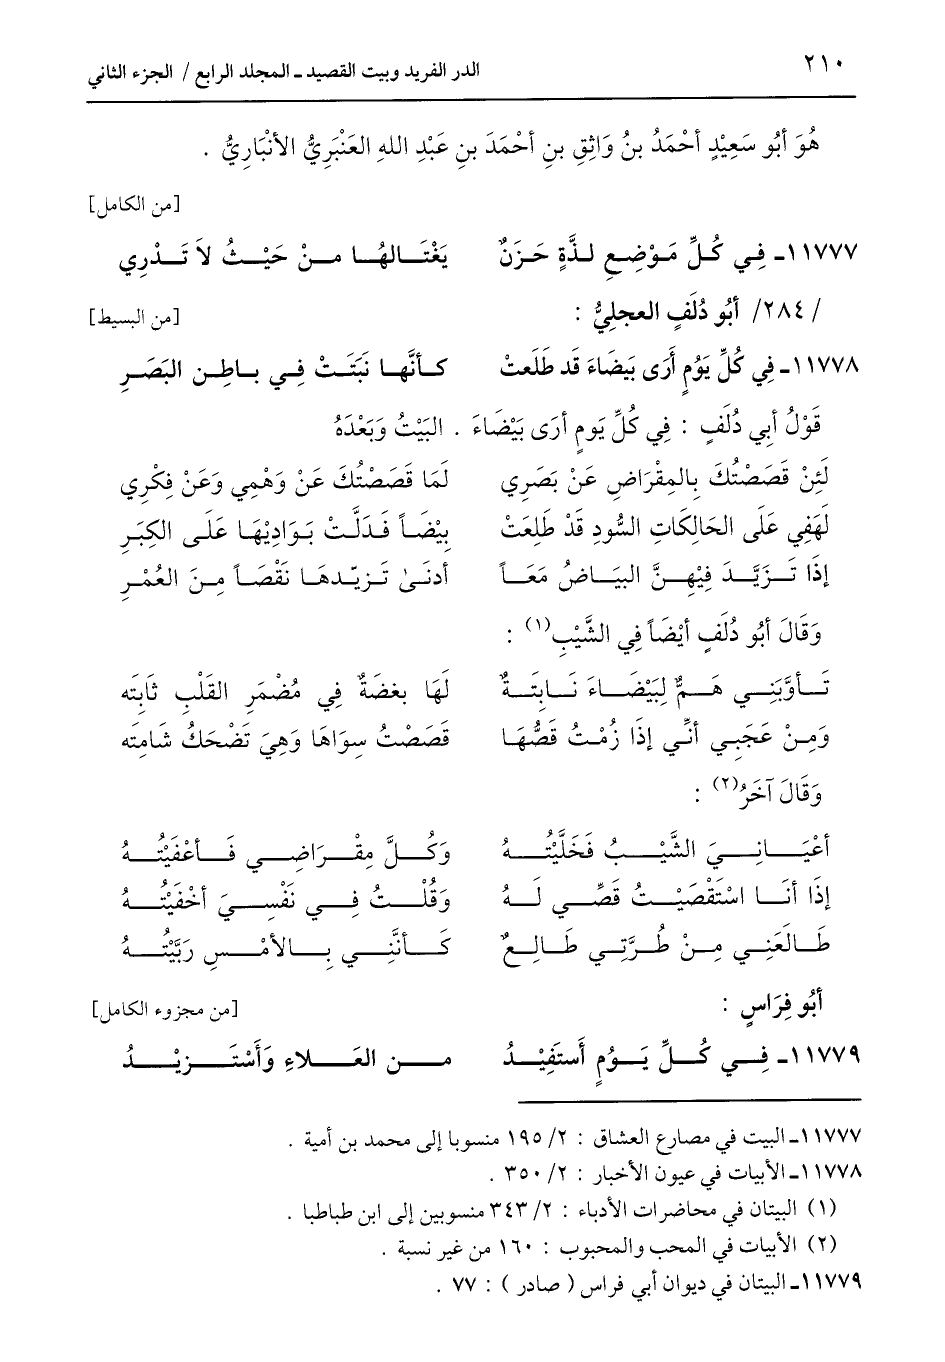 ٢١٠
الدر الفريد وبيت القصيد ـ المجلد الرابع / الجزء الثاني
هُوَ أَبُو سَعِيْدٍ أَحْمَدُ بنُ وَاثِقِ بنِ أَحْمَدَ بنِ عَبْدِ اللهِ العَنْبَرِيُّ الأَنْبَارِيُّ .
[من الكامل]
١١٧٧٧ـ فِي كُلِّ مَوْضِعِ لذَّةٍ حَزَنٌ يَغْتَالهُا مِنْ حَيْثُ لاَ تَدْرِي
/ ٢٨٤/ أَبُو دُلَفٍ العجلِيُّ : [من البسيط]
١١٧٧٨ـ فِي كُلِّ يَوْمٍ أَرَى بَيْضَاءَ قَد طَلَعتْ كَأَنَّها نَبَتَتْ فِي باطِنِ البَصَرِ
قَوْلُ أَبِي دُلَفٍ : فِي كُلِّ يَومٍ أَرَى بَيْضَاءَ . البَيْتُ وَبَعْدَهُ
لَئِنْ قَصَصْتُكَ بِالمِقْرَاضِ عَنْ بَصَرِي لَمَا قَصَصْتُكَ عَنْ وَهْمِي وَعَنْ فِكْرِي
لَهَفِي عَلَى الحَالِكَاتِ السُّودِ قَدْ طَلِعَتْ بِيْضَاً فَدَلَّتْ بَوَادِيْهَا عَلَى الكِبَرِ
إِذَا تَزَيَّدَ فِيْهِنَّ البَيَاضُ مَعَاً أَدنَى تَزيّدهَا نَقْصَاً مِنَ العُمْرِ
وَقَالَ أَبُو دُلَفٍ أَيْضَاً فِي الشَّيْبِ(١) :
تَأَوَّبَنِي هَمٌّ لِبَيْضَاءَ نَابتَةٌ لَهَا بغضَةٌ فِي مُضْمَرِ القَلْبِ ثَابِتَه
وَمِنْ عَجَبِي أَنِّي إِذَا رُمْتُ قَصَّهَا قَصَصْتُ سِوَاهَا وَهِيَ تَضْحَكُ شَامِتَه
وَقَالَ آخَرُ(٢) :
أَعْيَانِيَ الشَّيْبُ فَخَلَّيْتُهُ وَكُلَّ مِقْرَاضِي فَأَعْفَيْتُهُ
إِذَا أَنَا اسْتَقْصَيْتُ قَصِّي لَهُ وَقُلْتُ فِي نَفْسِيَ أَخْفَيْتُهُ
طَالَعَنِي مِنْ طُرَّتِي طَالِعٌ كَأَنَّنِي بِالأَمْسِ رَبَّيْتُهُ
أَبُو فِرَاسٍ : [من مجزوء الكامل]
١١٧٧٩ـ فِي كُلِّ يَوْمٍ أَستَفِيْدُ مِن العَلاءِ وَأَسْتَزِيْدُ
١١٧٧٧ـ البيت في مصارع العشاق : ٢/ ١٩٥ منسوبا إلى محمد بن أمية .
١١٧٧٨ـ الأبيات في عيون الأخبار : ٢/ ٣٥٠ .
(١) البيتان في محاضرات الأدباء : ٢/ ٣٤٣ منسوبين إلى ابن طباطبا .
(٢) الأبيات في المحب والمحبوب : ١٦٠ من غير نسبة .
١١٧٧٩ـ البيتان في ديوان أبي فراس ( صادر ) : ٧٧ .